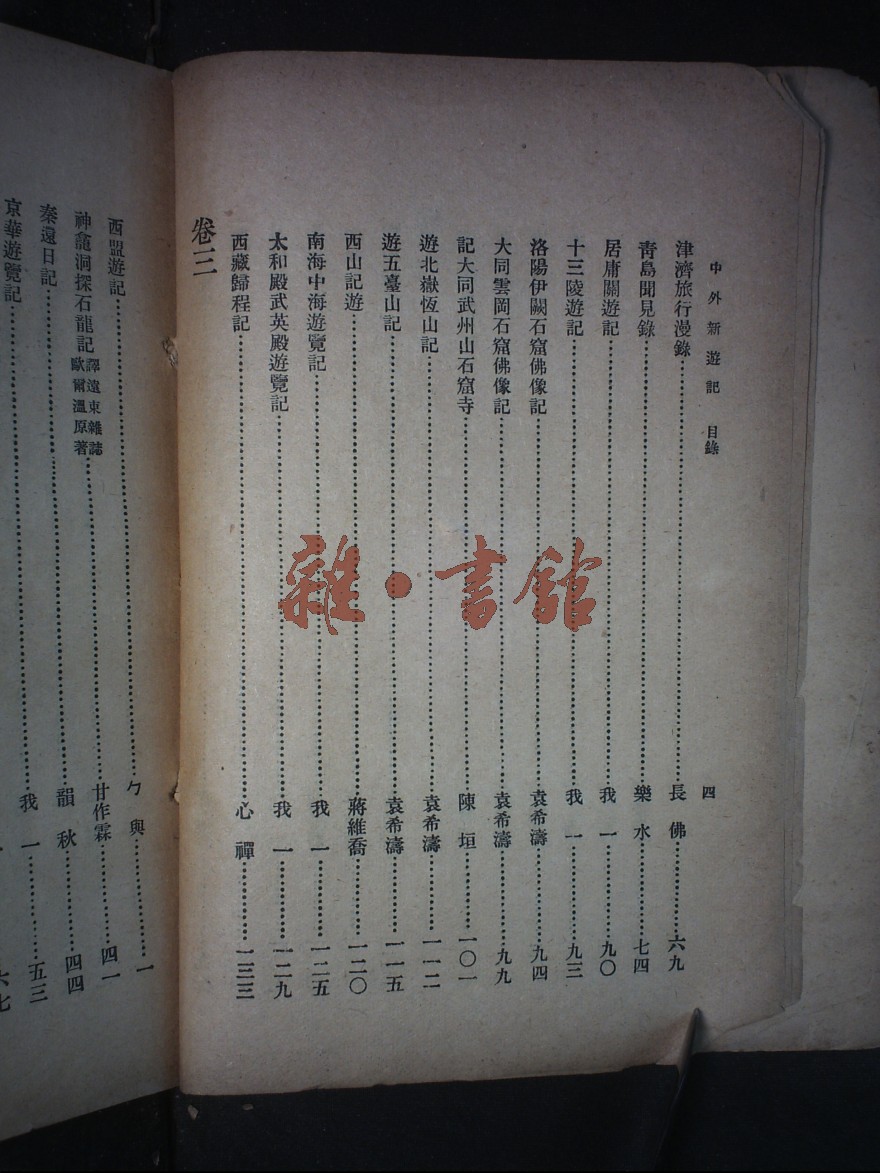 中外新遊記 目錄 四
津濟旅行漫錄……長佛……六九
青島聞見錄……樂水……七四
居庸關遊記……我一……九〇
十三陵遊記……我一……九三
洛陽伊闕石窟佛像記……袁希濤……九四
大同雲岡石窟佛像記……袁希濤……九九
記大同武州山石窟寺……陳垣……一〇一
遊北嶽恆山記……袁希濤……一一二
遊五臺山記……袁希濤……一一五
西山記遊……蔣維喬……一二〇
南海中海遊覽記……我一……一二五
太和殿武英殿遊覽記……我一……一二九
西藏歸程記……心禪……一三三
卷三
西盟遊記……勹與……一
神龕洞探石龍記 譯遠東雜誌 歐爾溫原著……甘作霖……四一
秦遠日記……韻秋……四四
京華遊覽記……我一……五三
六七
雜·書館